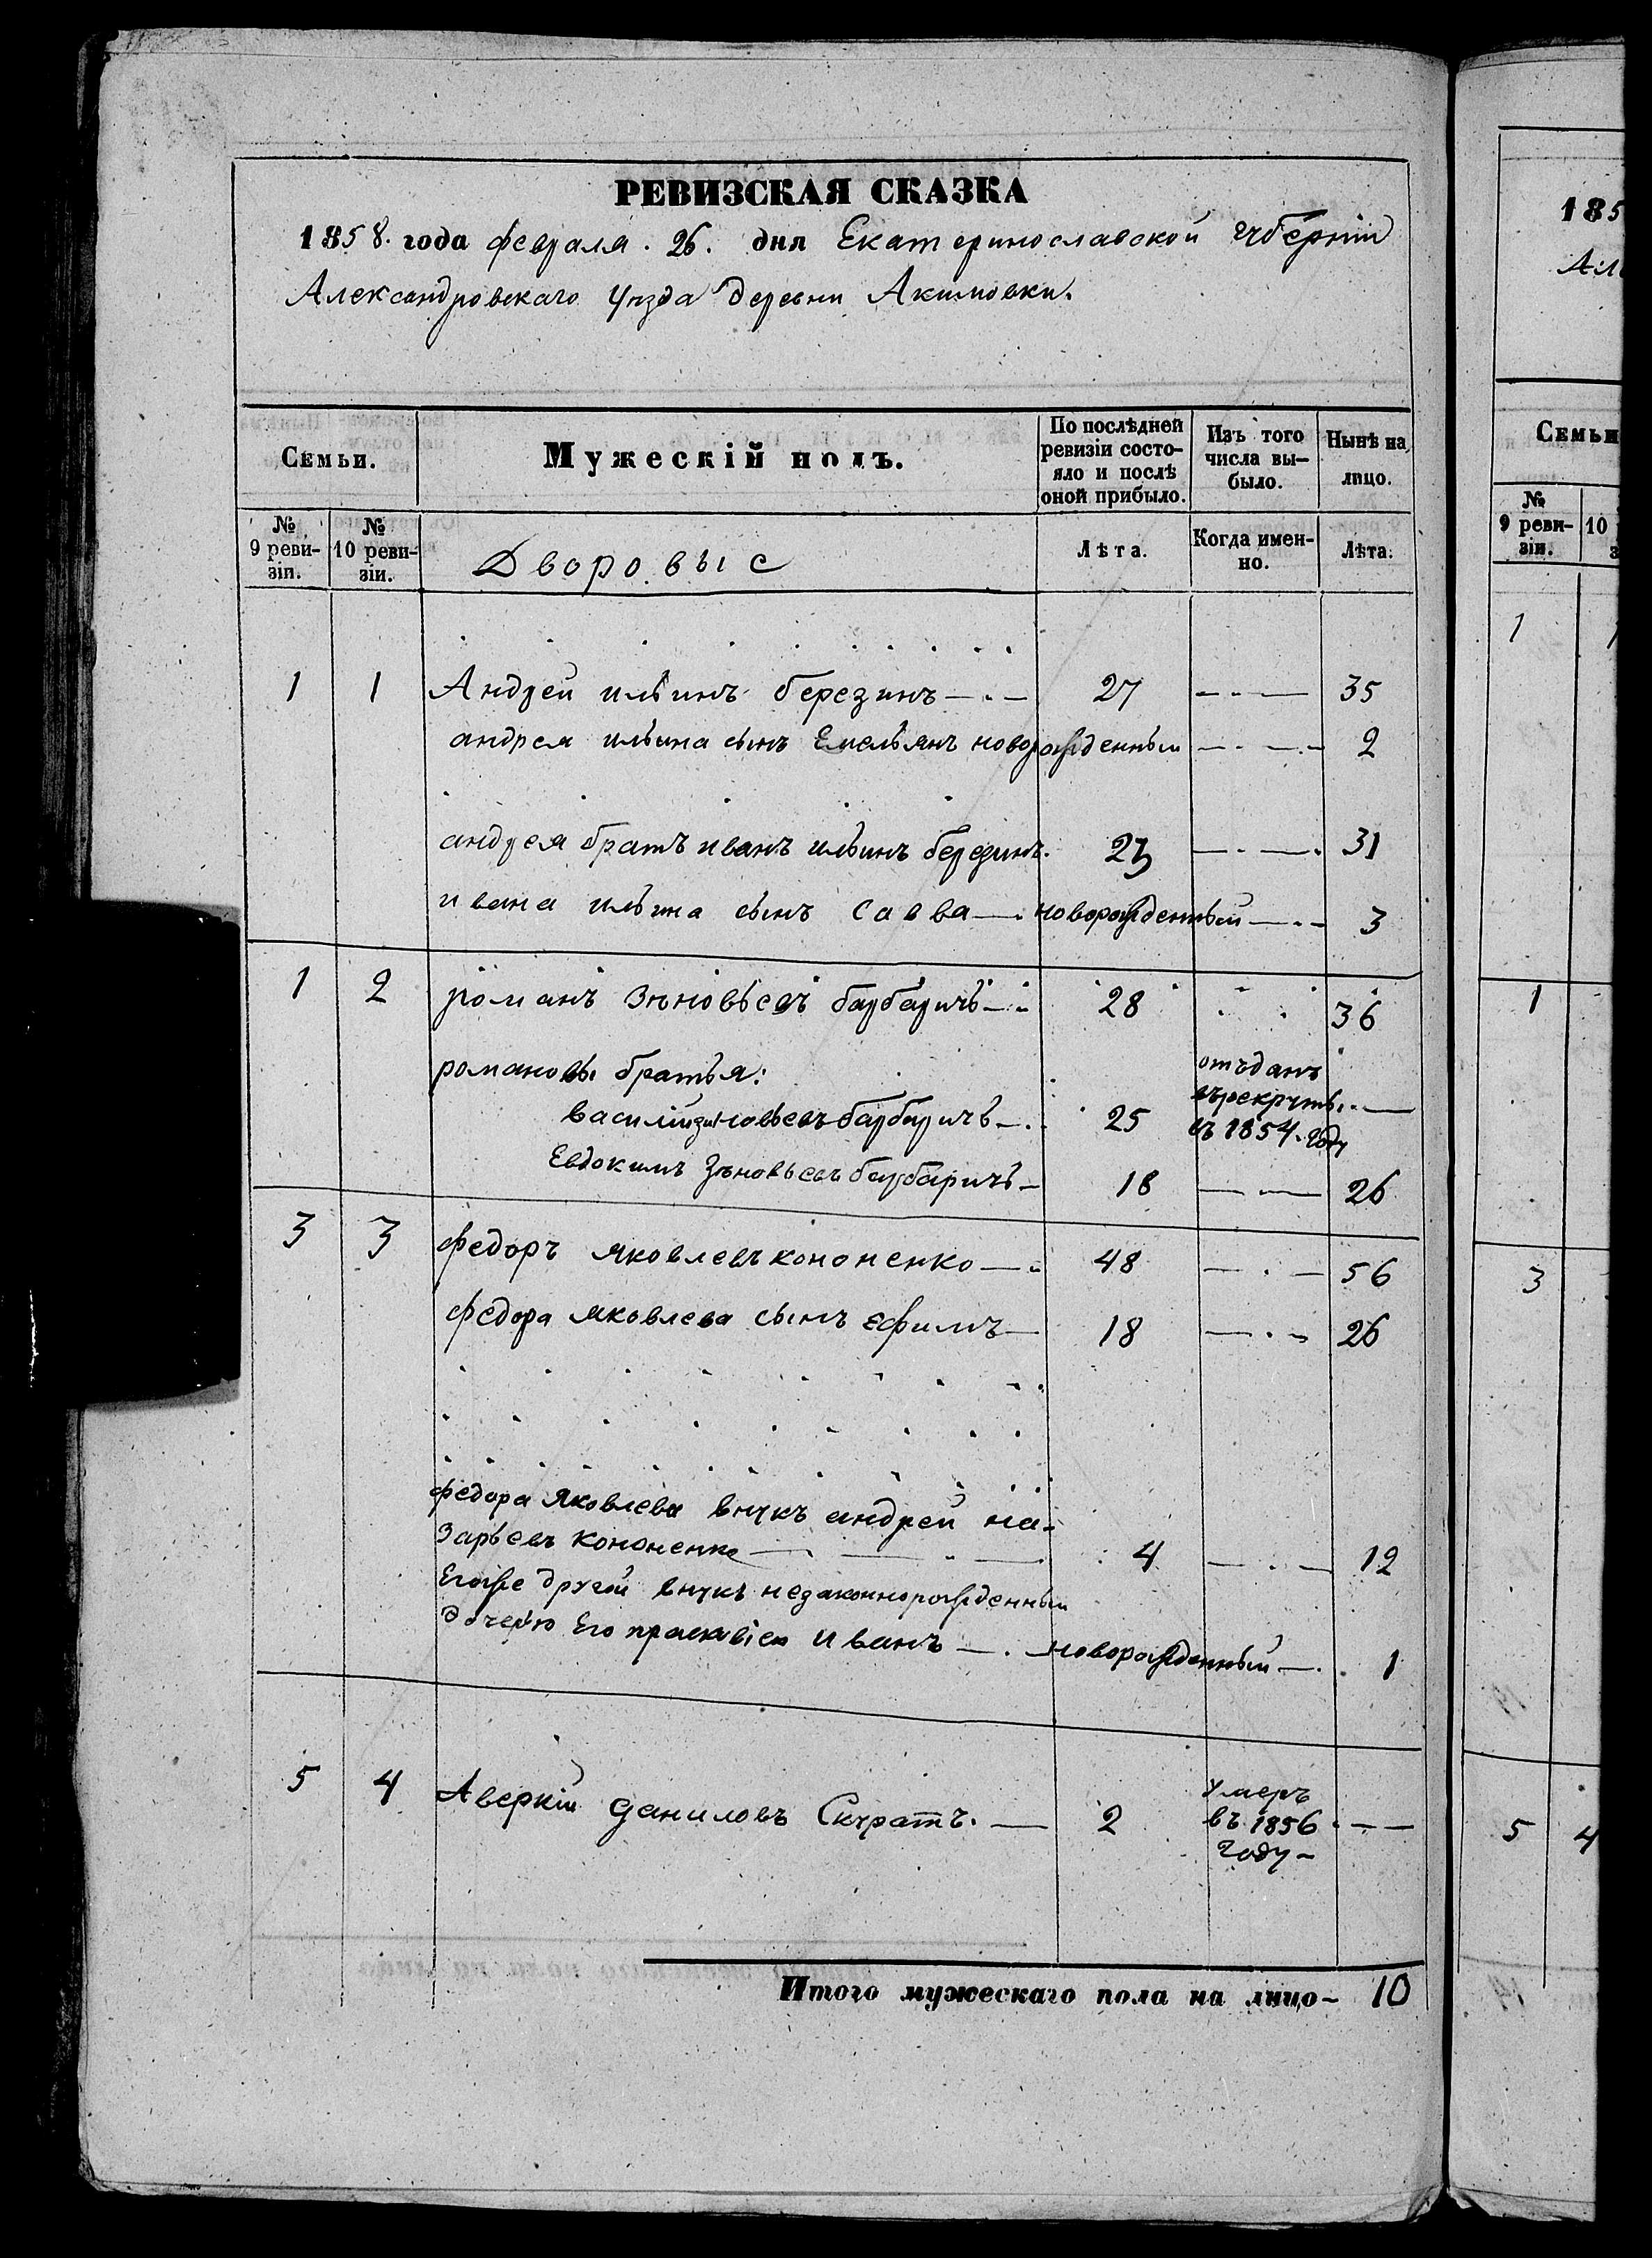 РЕВИЗСКАЯ СКАЗКА
1858. года февраля. 26. дня Екатеринославской губерніи
Александровскаго уѣзда деревни Акимовки.
Семьи.
Мужескій полъ.
По послѣдней ревизіи состо-яло и послѣ оной прибыло.
Изъ того числа вы-было.
Нынѣ на лицо.
№ 9 реви-зіи.
№ 10 реви-зіи.
Дворовые
Лѣта.
Когда имен-но.
Лѣта.
1 1 Андрей ильинъ березинъ 27 35
андрея ильина сынъ Емельянъ новорожденный 2
андрея братъ иванъ ильинъ березинъ. 23 31
ивана ильина сынъ савва новорожденный 3
1 2 романъ Зѣновьевъ барбаричъ 28 36
романовы братья:
василій зиновьевъ барбаричъ 25 отъданъ въ рекруты въ 1854. году
Евдокимъ Зѣновьевъ барбаричъ 18 26
3 3 федоръ яковлевъ кононенко 48 56
федора яковлева сынъ ефимъ 18 26
федора яковлева внукъ андрей на-
зарьевъ кононенко 4 12
Егоже другой внукъ незаконнорожденный
дочерью Его праскивіею иванъ новорожденный 1
5 4 Аверкій даниловъ Скуратъ. 2 умеръ въ 1856 году
Итого мужескаго пола на лицо 10
185
Ал
Семьи
№ 9 реви-зіи.
10
1
1
3
5 4